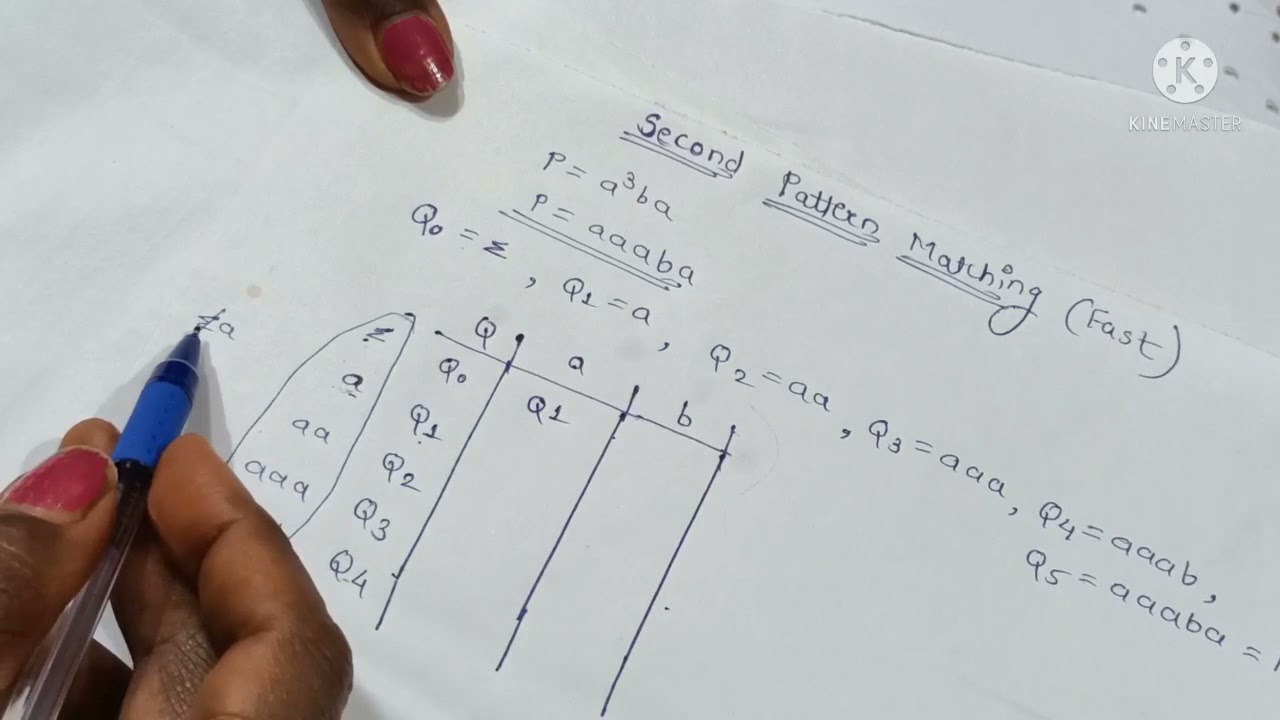 KINEMASTER
Second Pattern Matching (Fast)
P = a³ba
P = aaaba
Q₀ = Σ, Q1 = a, Q₂ = aa, Q₃ = aaa, Q₄ = aaab,
Q₅ = aaaba =
Σa
Q a b
Σ Q₀ Q1
a Q1
aa Q₂
aaa Q₃
Q₄